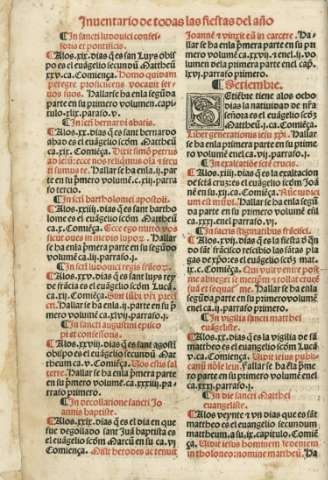 Inuentario de todas las fiestas del año
¶ In sancti ludouici confes/
soris et pontificis.
¶ Alos. xix. dias q̃ es san Luys obis
po es el euãgelio secundũ Mattheũ
xxv. ca. Comiẽça. Homo quidam
peregre proficiscens vocauit ser
uos suos. Hallarse ha ẽla segũda
parte en su primero volumen. capi
tulo. xlix. parrafo. v.
¶ In scti bernardi abatis.
¶ Alos. xx. dias q̃ es sant bernardo
abad es el euãgelio scd̃m Mattheũ
ca. xix. Comiẽça. Dixit simõ petrus
ad iesũ: ecce nos reliquimus oĩa ⁊ secu
ti sumus te. Hallarse ha enla. ij. par
te en su p̃mero volumẽ. c. iij. parra
fo tercio.
¶ In scti bartholomei apostoli.
¶ Alos. xxiiij. dias q̃ es sant bartho
lome es el euãgelio scd̃m Mattheũ
ca. x. Comiẽça. Ecce ego mitto vos
sicut oues in medio lupoꝝ. Hallar
se ha enla p̃mera parte en su segũdo
volumẽ ca. liij. parrafo. j.
¶ In scti ludouici regis frãcie.
¶ Alos. xxv. dias q̃ es sant luys rey
de frãcia es el euãgelio scd̃m Lucã
ca. xij. Comiẽça. Sint lũbi vr̃i preci
cti. Hallarse ha enla. ij. parte en su p̃
mero volumẽ. c. xlvi. parrafo. j.
¶ In sancti augustini episco
pi at confessoris.
¶ Alos. xxviij. dias q̃ es sant agostĩ
obispo es el euãgelio secundũ Mat
theum ca. v. Comiẽça. Vos estis sal
terre. Hallarse ha enla p̃mera parte
en su p̃mero volumẽ ca. xxxiij. pa/
rrafo. j.
¶ In decollatione sancti Jo
annis baptiste.
¶ Alos. xxix. dias q̃ es el dia en que
fue degollado sant Juã baptista es
el euãgelio scd̃m Marcũ en su ca. vj
Comiẽça. Misit herodes ac tenuit
Joannẽ ⁊ vinxit eũ in carcere. Ha/
llar se ha enla p̃mera parte en su pri
mero volumẽ ca. xxvij. ⁊ enel. ij. vo
lumen dela primera parte enel cap.
lxvj. parrafo primero.
¶ Setiembre.
Setiẽbre tiene alos ocho
dias la natiuidad de nr̃a
señora es el euãgelio scd̃m
Mattheũ. j. ca. Comiẽça.
Liber generationis iesu xp̃i. Hallar
se ha enla primera parte en su pri/
mero volumẽ enel ca. vij. parrafo. j.
¶ In exaltatiõe scte crucis.
¶ Alos. xiiij. dias q̃ es la exaltacion
de scta cruz es el euãgelio scd̃m Joã
nẽ en su. xij. ca. Comiẽça. Nũc iudici
um est mũdi. Hallar se ha enla segũ
da parte en su primero volumẽ ca.
xxxij. enel parrafo. vj.
¶ In sacris stigmatibus frãcisci.
¶ Alos. xvij. dias q̃ es la fiesta q̃ di/
os sãt frãcisco rescibio las sctãs pla
gas de xp̃o: es el euãgelio scd̃m mat.
ix. c. Comiẽça. Qui vult venire post
me abneget semetipsũ ⁊ tollat crucẽ
suã et sequat᷑ me. Hallar se ha enla
segũda parte en su primero volumẽ
enel ca. xj. parrafo. j.
¶ In vigilia sancti matthei
euãgeliste.
¶ Alos. xx. dias q̃ es la vigilia de sã
mattheo es el euãgelio scd̃m Lucã
v. ca. Comiẽça. Vidit iesus publi/
canũ noĩe leui. Hallar se ha ẽla p̃me
ra parte en su primero volumẽ enel
ca. xxxj. parrafo. j.
¶ In die sancti Mathei
euangeliste.
¶ Alos veynte ⁊ vn dias que es sãt
mattheo es el euãgelio secundum
mattheum. a su. ix. capitulo. Comiẽ
ça. Vidit iesus hominem sedentem
in tholoneo: nomine mattheũ. Ha